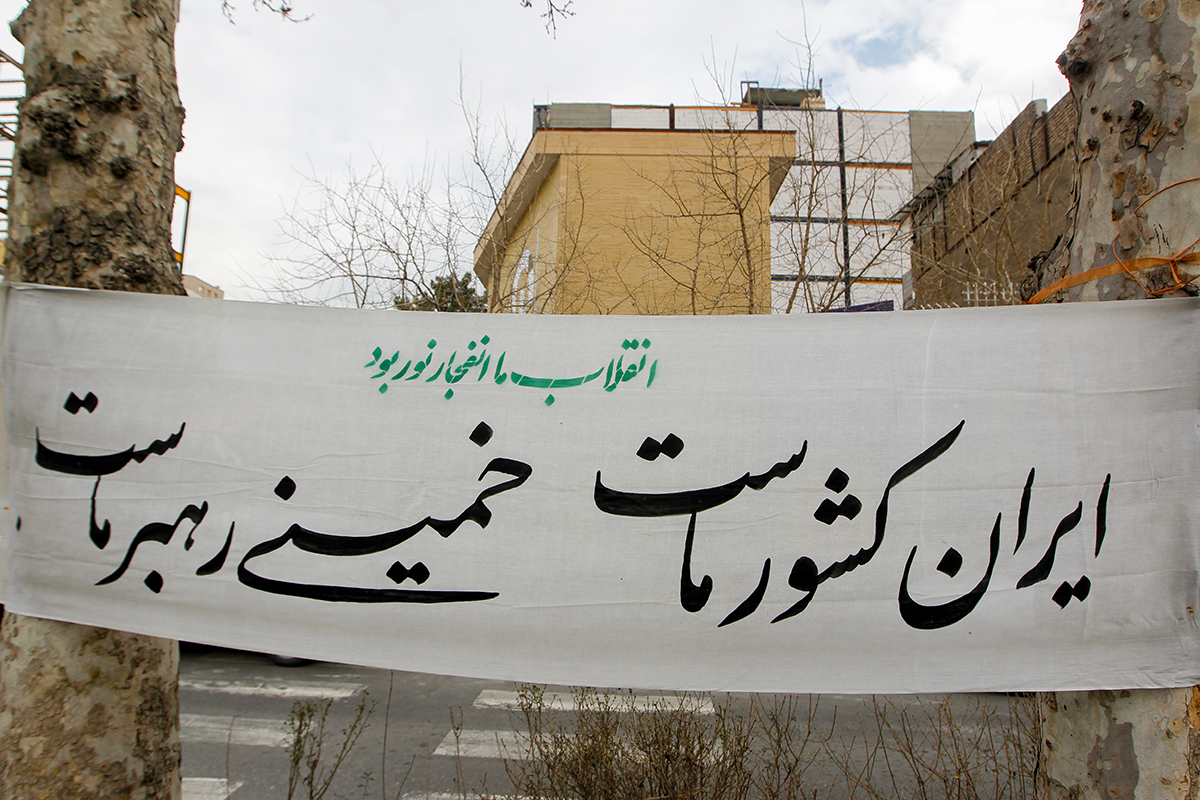 انقلاب ما انفجار نور بود
ایران کشور ماست خمینی رهبر ماست